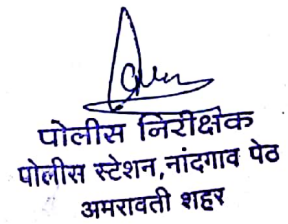 पोलीस निरीक्षक
पोलीस स्टेशन,नांदगाव पेठ
अमरावती शहर